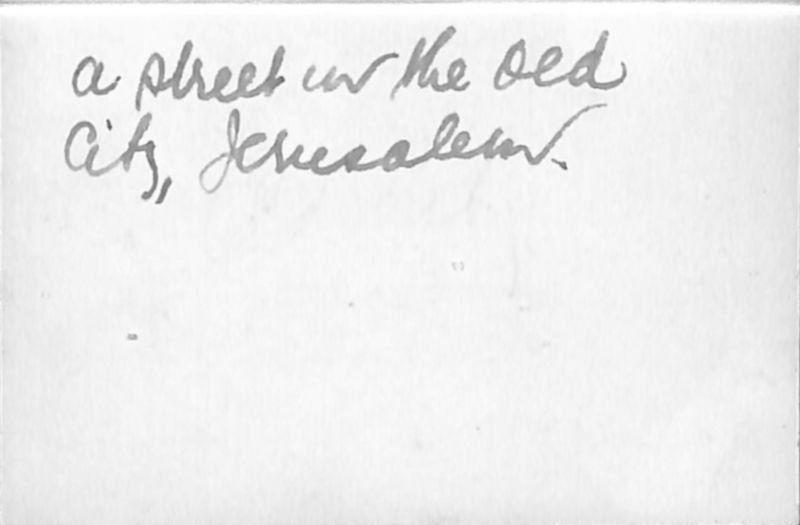 a street in the old
City, Jerusalem.